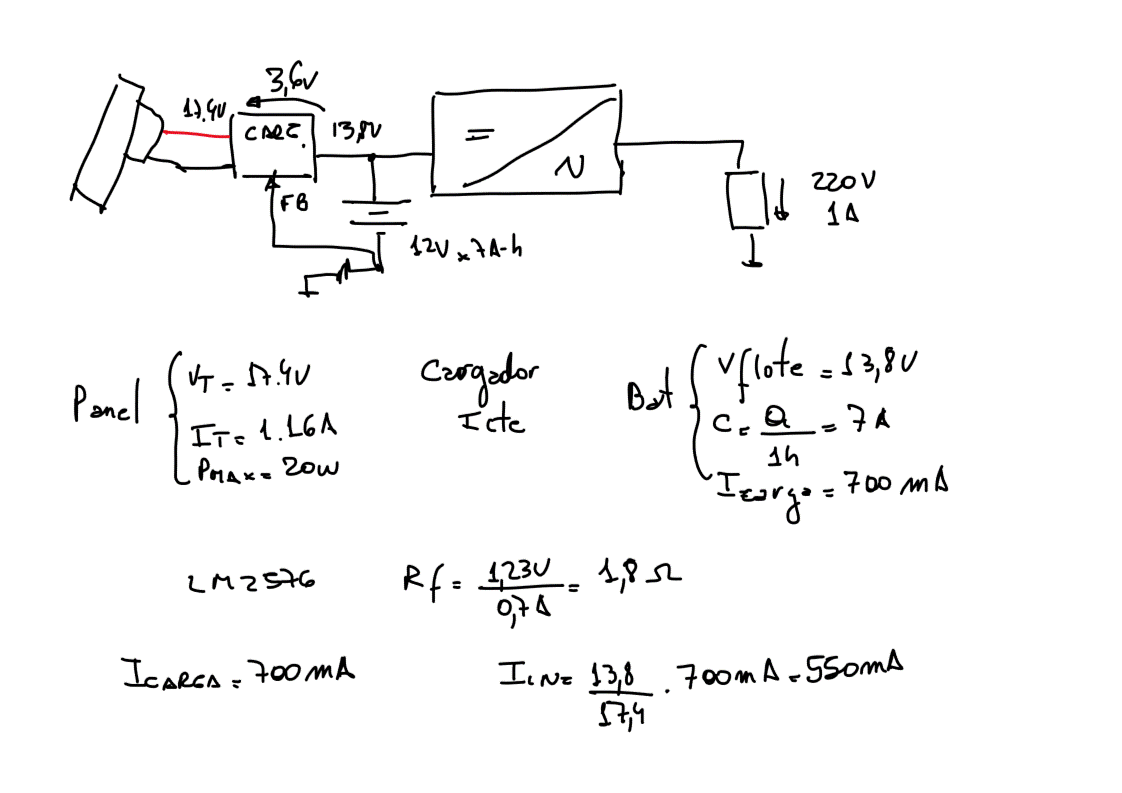 3,6V
17.4V
CARG.
13,8V
=
N
FB
220V
1A
12V x 7A-h
Panel
VT = 17.4V
IT = 1.16A
PMAX = 20W
Cargador
Icte
Bat
Vflote = 13,8V
C = Q/1h = 7A
Icarga = 700 mA
LM2576
Rf = 1,23V/0,7A = 1,8 Ω
ICARGA = 700mA
IIN = 13,8/17,4 . 700mA = 550mA